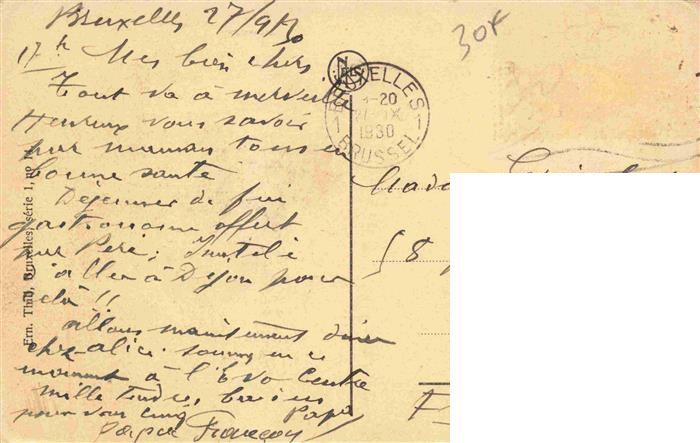 Bruxelles 27/9/30
17h Mes bien chers
Tout va à merveille
Heureux vous savoir
par maman tous en
bonne santé
Déjeuner de fin
gastronome offert
par Père, Inutile
d'aller à Dijon pour
celà !!
allons maintenant diner
chez alice. sommes en ce
moment à l'Evo Centre
mille tendres baisers
pour vous cinq Papa
François
Ern. Thill, Bruxelles, série 1, no
30x
BRUXELLES
1 1
-20
IX
1930
BRUSSEL
Mada
58
F